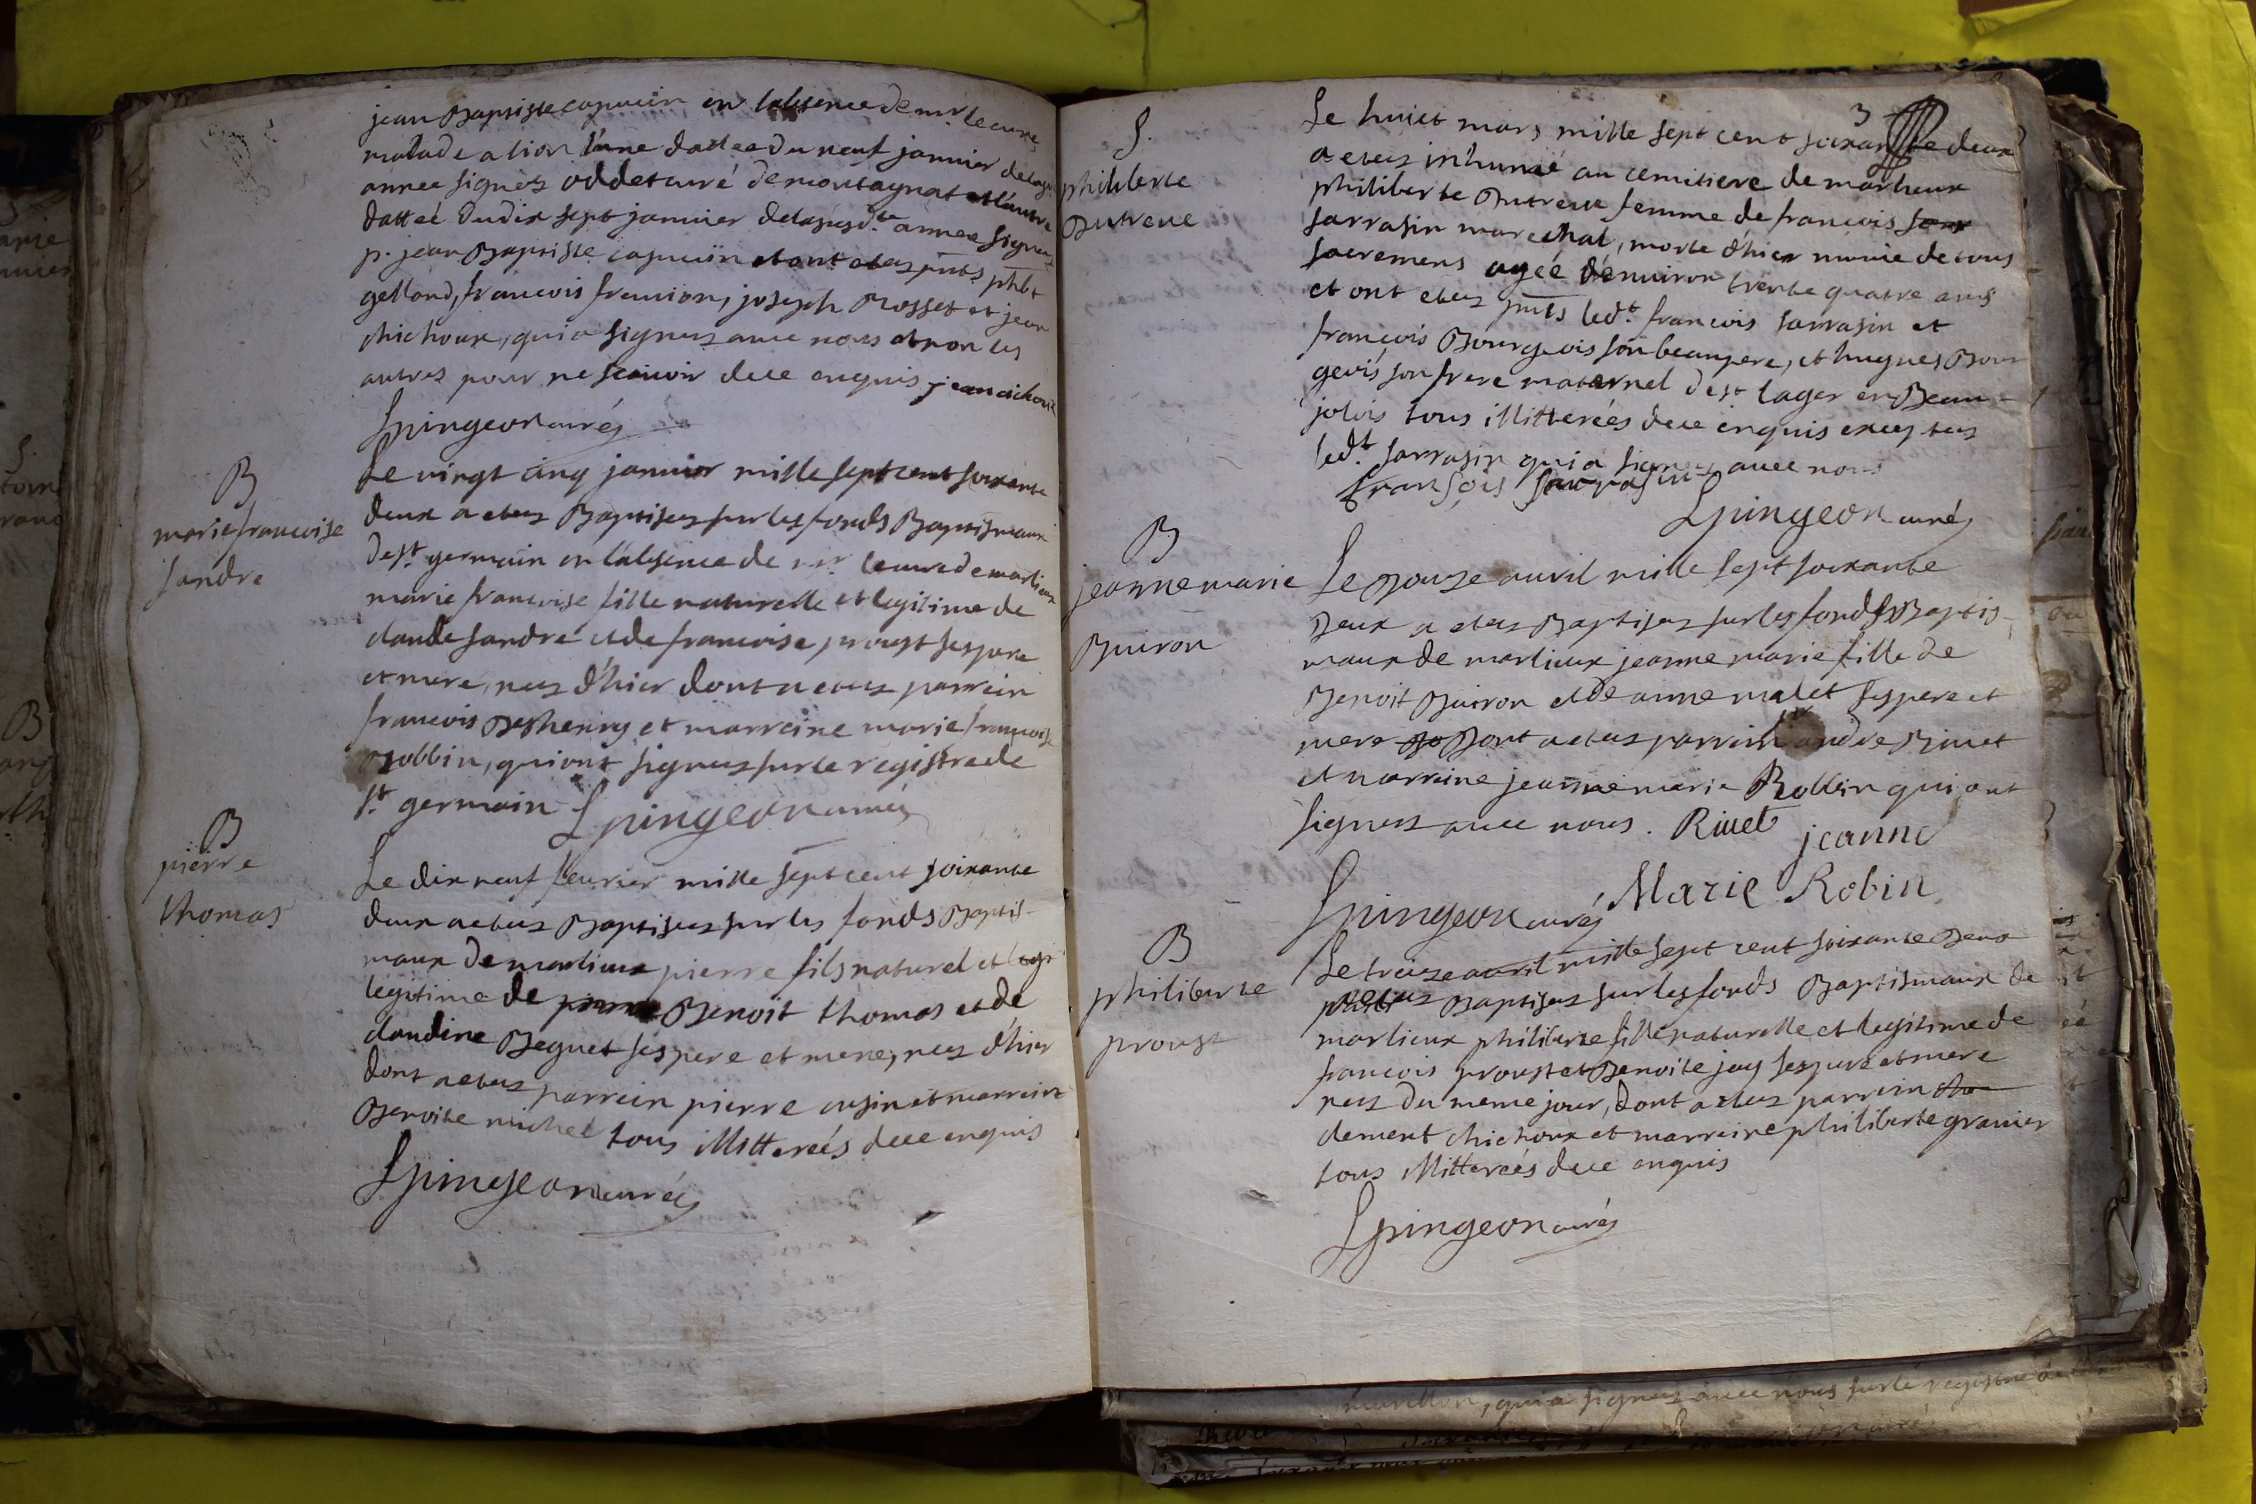 jean Baptiste capucin en labsence de mr. le curé
malade a lion l'une dattee du neuf janvier de la
année signez oddet curé de montagnat et l'autre
dattéé du dix sept janvier de la susd.te année signez
p. jean Baptiste capucin et ont etez pnts phlbt
gelland, francois francion, joseph Rosset et jean
chichoux, qui a signez avec nous et non les
autres pour ne scavoir de ce enquis jean cichoux
Spingeon curéz
B
marie francoise
sandre
Le vingt cinq janvier mille sept cent soixante
deux a etez Baptisez sur les fonds Baptismaux
de st germain en l'absence de mr le cure de marlieux
marie francoise fille naturelle et legitime de
claude sandre et de francoise proust ses pere
et mere, nez d'hier dont a etez parrein
francois Deshenry et marreine marie francoise
Robbin, qui ont signez sur le registre de
st. germain Spingeon curéz
B
pierre
thomas
Le dix neuf feuvrier mille sept cent soixante
deux a etez Baptisez sur les fonds Baptis-
maux de marlieux pierre fils naturel et legi
legitime de pierre Benoit thomas et de
claudine Beguet ses pere et mere, nez d'hier
dont a etez parrein pierre cusin et marreine
Benoite michel tous illitterées de ce enquis
Spingeon curéz
S.
philiberte
Dutreve
3
Le huict mars mille sept cent soixante deux
a etez inhumé au cemitiere de marlieux
philiberte Dutreve femme de francois sar
sarrasin marechal, morte d'hier munie de tous
sacremens agéé d'enuiron trente quatre ans
et ont etez pnts led.t francois sarrasin et
francois Bourgeois son beaupere, et hugues Bour
geois son frere maternel de st lager en Beau-
jolois tous illitterées de ce enquis exceptez
led.t sarrasin qui a signez avec nous
fransois sarrasin
Spingeon curéz
B
jeanne marie
Buiron
Le Douze avril mille sept soixante
Deux a etez Baptisez sur les fonds Baptis-
maux de marlieux jeanne marie fille de
Benoit Buiron et de anne malet ses pere et
mere Dont a etez parrein andre Rivet
et marraine jeanne marie Robbin qui ont
signez avec nous. Rivet jeanne
Marie Robin
Spingeon curéz
B
philiberte
proust
Le treize avril mille sept cent soixante Deux
a etez Baptisez sur les fonds Baptismaux de
marlieux philiberte fille naturelle et legitime de
francois proust et Benoite jay ses pere et mere
nez du meme jour, dont a etez parrein
clement chichoux et marreine philiberte granier
tous illitterées de ce enquis
Spingeon curéz
qui a signez avec nous sur le registre